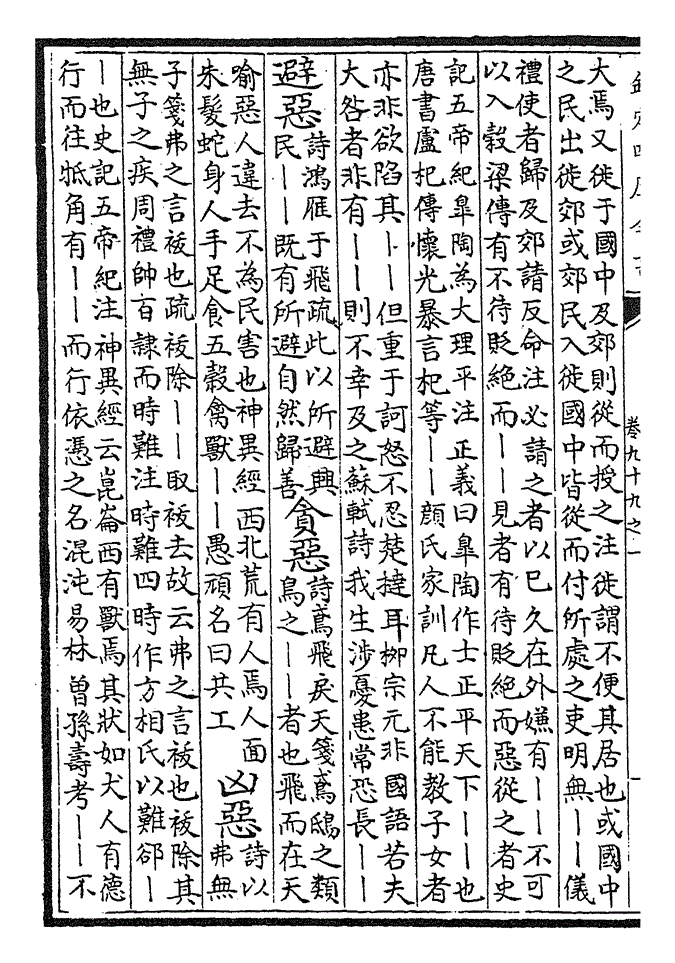 卷九十九之一
大焉又徙于國中及郊則從而授之注徙謂不便其居也或國中
之民出徙郊或郊民入徙國中皆從而付所處之吏明無丨丨儀
禮使者歸及郊請反命注必請之者以已久在外嫌有丨丨不可
以入穀梁傳有不待貶絕而丨丨見者有待貶絕而惡從之者史
記五帝紀皐陶為大理平注正義曰皐陶作士正平天下丨丨也
唐書盧杞傳懷光暴言杞等丨丨顔氏家訓凡人不能教子女者
亦非欲陷其丨丨但重于訶怒不忍楚撻耳栁宗元非國語若夫
大咎者非有丨丨則不幸及之蘇軾詩我生涉憂患常恐長丨丨
避惡
詩鴻雁于飛疏此以所避興
民丨丨既有所避自然歸善
貪惡
詩鳶飛戾天箋鳶鴟之類
鳥之丨丨者也飛而在天
喻惡人違去不為民害也神異經西北荒有人焉人面
朱髮蛇身人手足食五穀禽獸丨丨愚頑名曰共工
凶惡
詩以
弗無
子箋弗之言祓也疏祓除丨丨取祓去故云弗之言祓也祓除其
無子之疾周禮帥百隸而時難注時難四時作方相氏以難郤丨
丨也史記五帝紀注神異經云崑崙西有獸焉其狀如犬人有德
行而往牴角有丨丨而行依憑之名混沌易林曾孫壽考丨丨不